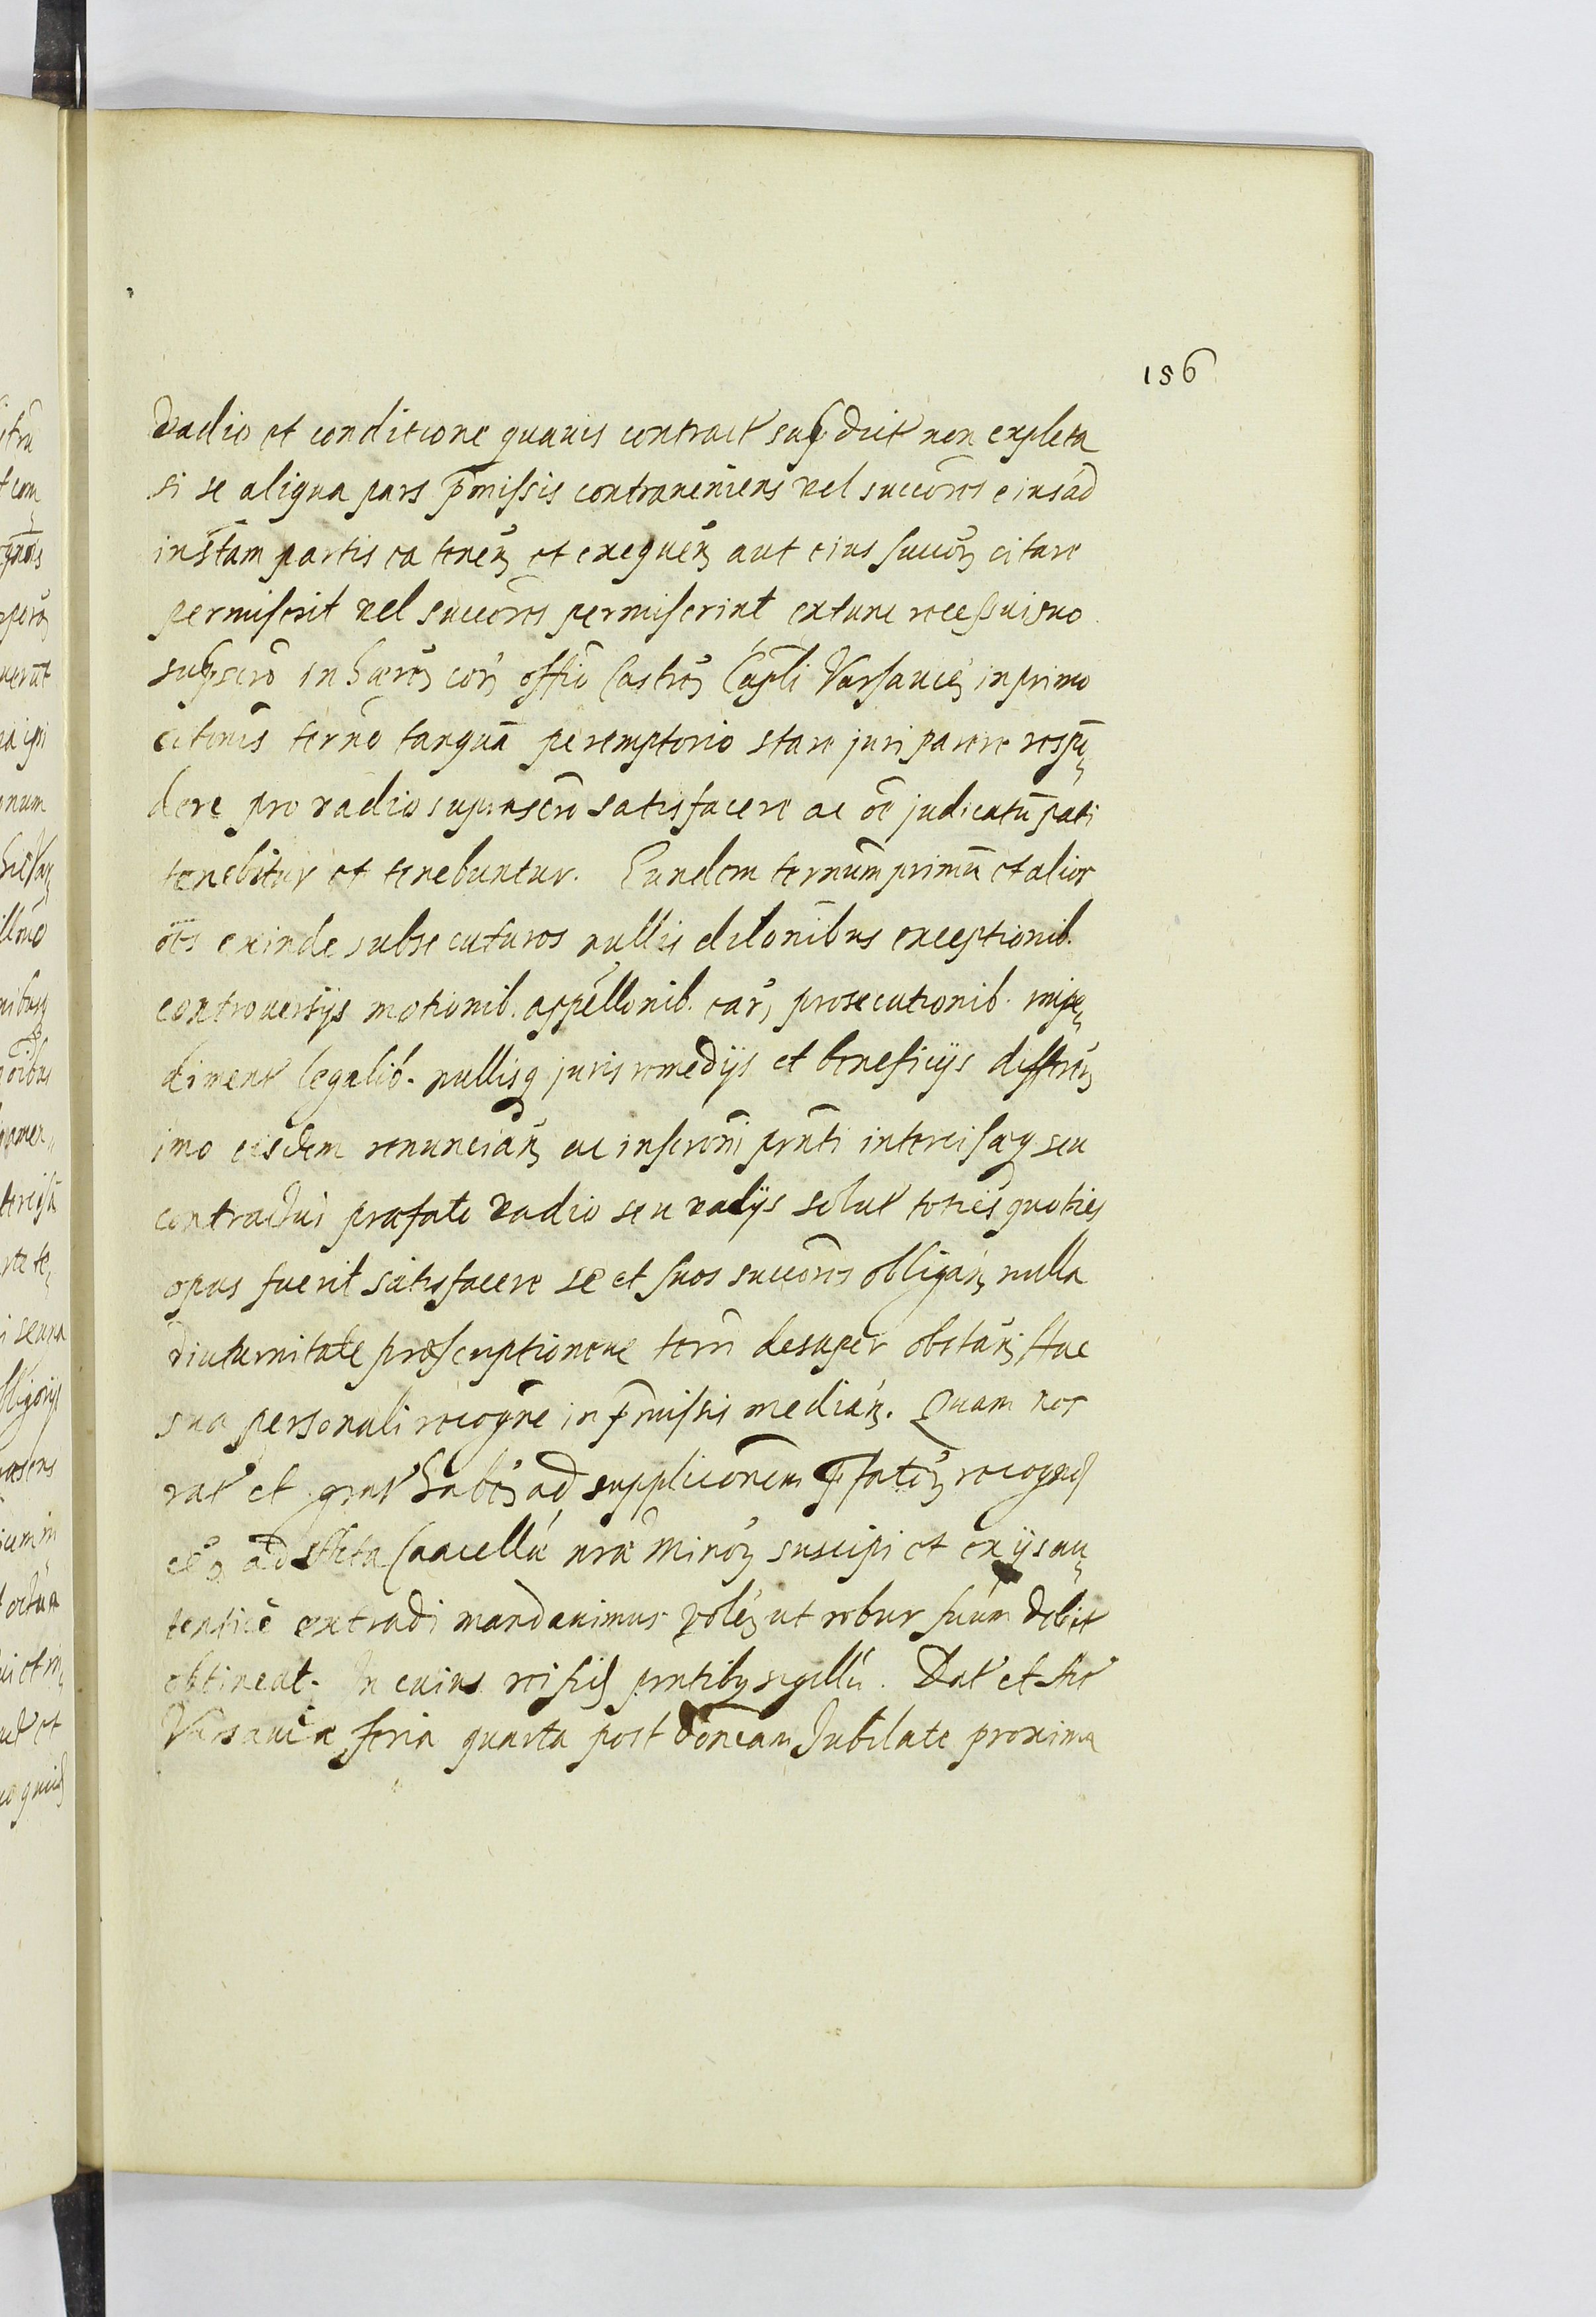 156
vadio et conditione quavis contract supdict non expleta
si se aliqua pars pmissis contraveniens vel succōres eius ad
instam partis ea tenen et exequen aut eius succorū citare
permiserit vel succōres permiserint extunc recessui suo
supscro inhæren cor offio Castren Capli Varsavien in primo
citonis terno tanquā peremptorio stare juri parere respō„
dere pro vadio suprascro satisfacere ac oē judicatū pati
tenebitur et tenebuntur. Eundem ternum primū et alios
oēs exinde subsecuturos nullis dilonibus exceptionib.
controversijs motionib. appellonib. car, prosecutionib. impe„
diment legalib. nullisq juris remedijs et beneficijs differen
imo eisdem renuncian ac inscroni pnti intercisæq seu
contractui præfato vadio seu vadijs solut toties quoties
opus fuerit satisfacere se et suos succōres obligan nulla
diuturnitate præscriptioneve terræ desuper obstan, Hac
sua personali recogne in pmissis median. Quam nos
rat et grat haben ad supplicōnem pfator recogn
ad Acta Cancellæ nræ Minor suscipi et ex ijs au„
tentice extradi mandavimus volen ut robur suum debit
obtineat. In cuius rei fid pntibq sigillū. Dat et Act
Varsaviæ feria quarta post doncam Jubilate proxima